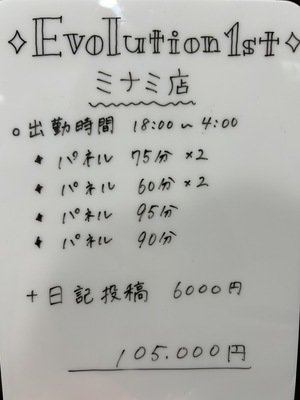 ✧Evolution1st✧
ミナミ店
○出勤時間 18:00～4:00
✦ パネル 75分 ×2
✦ パネル 60分 ×2
✦ パネル 95分
✦ パネル 90分
+日記投稿 6000円
105.000円